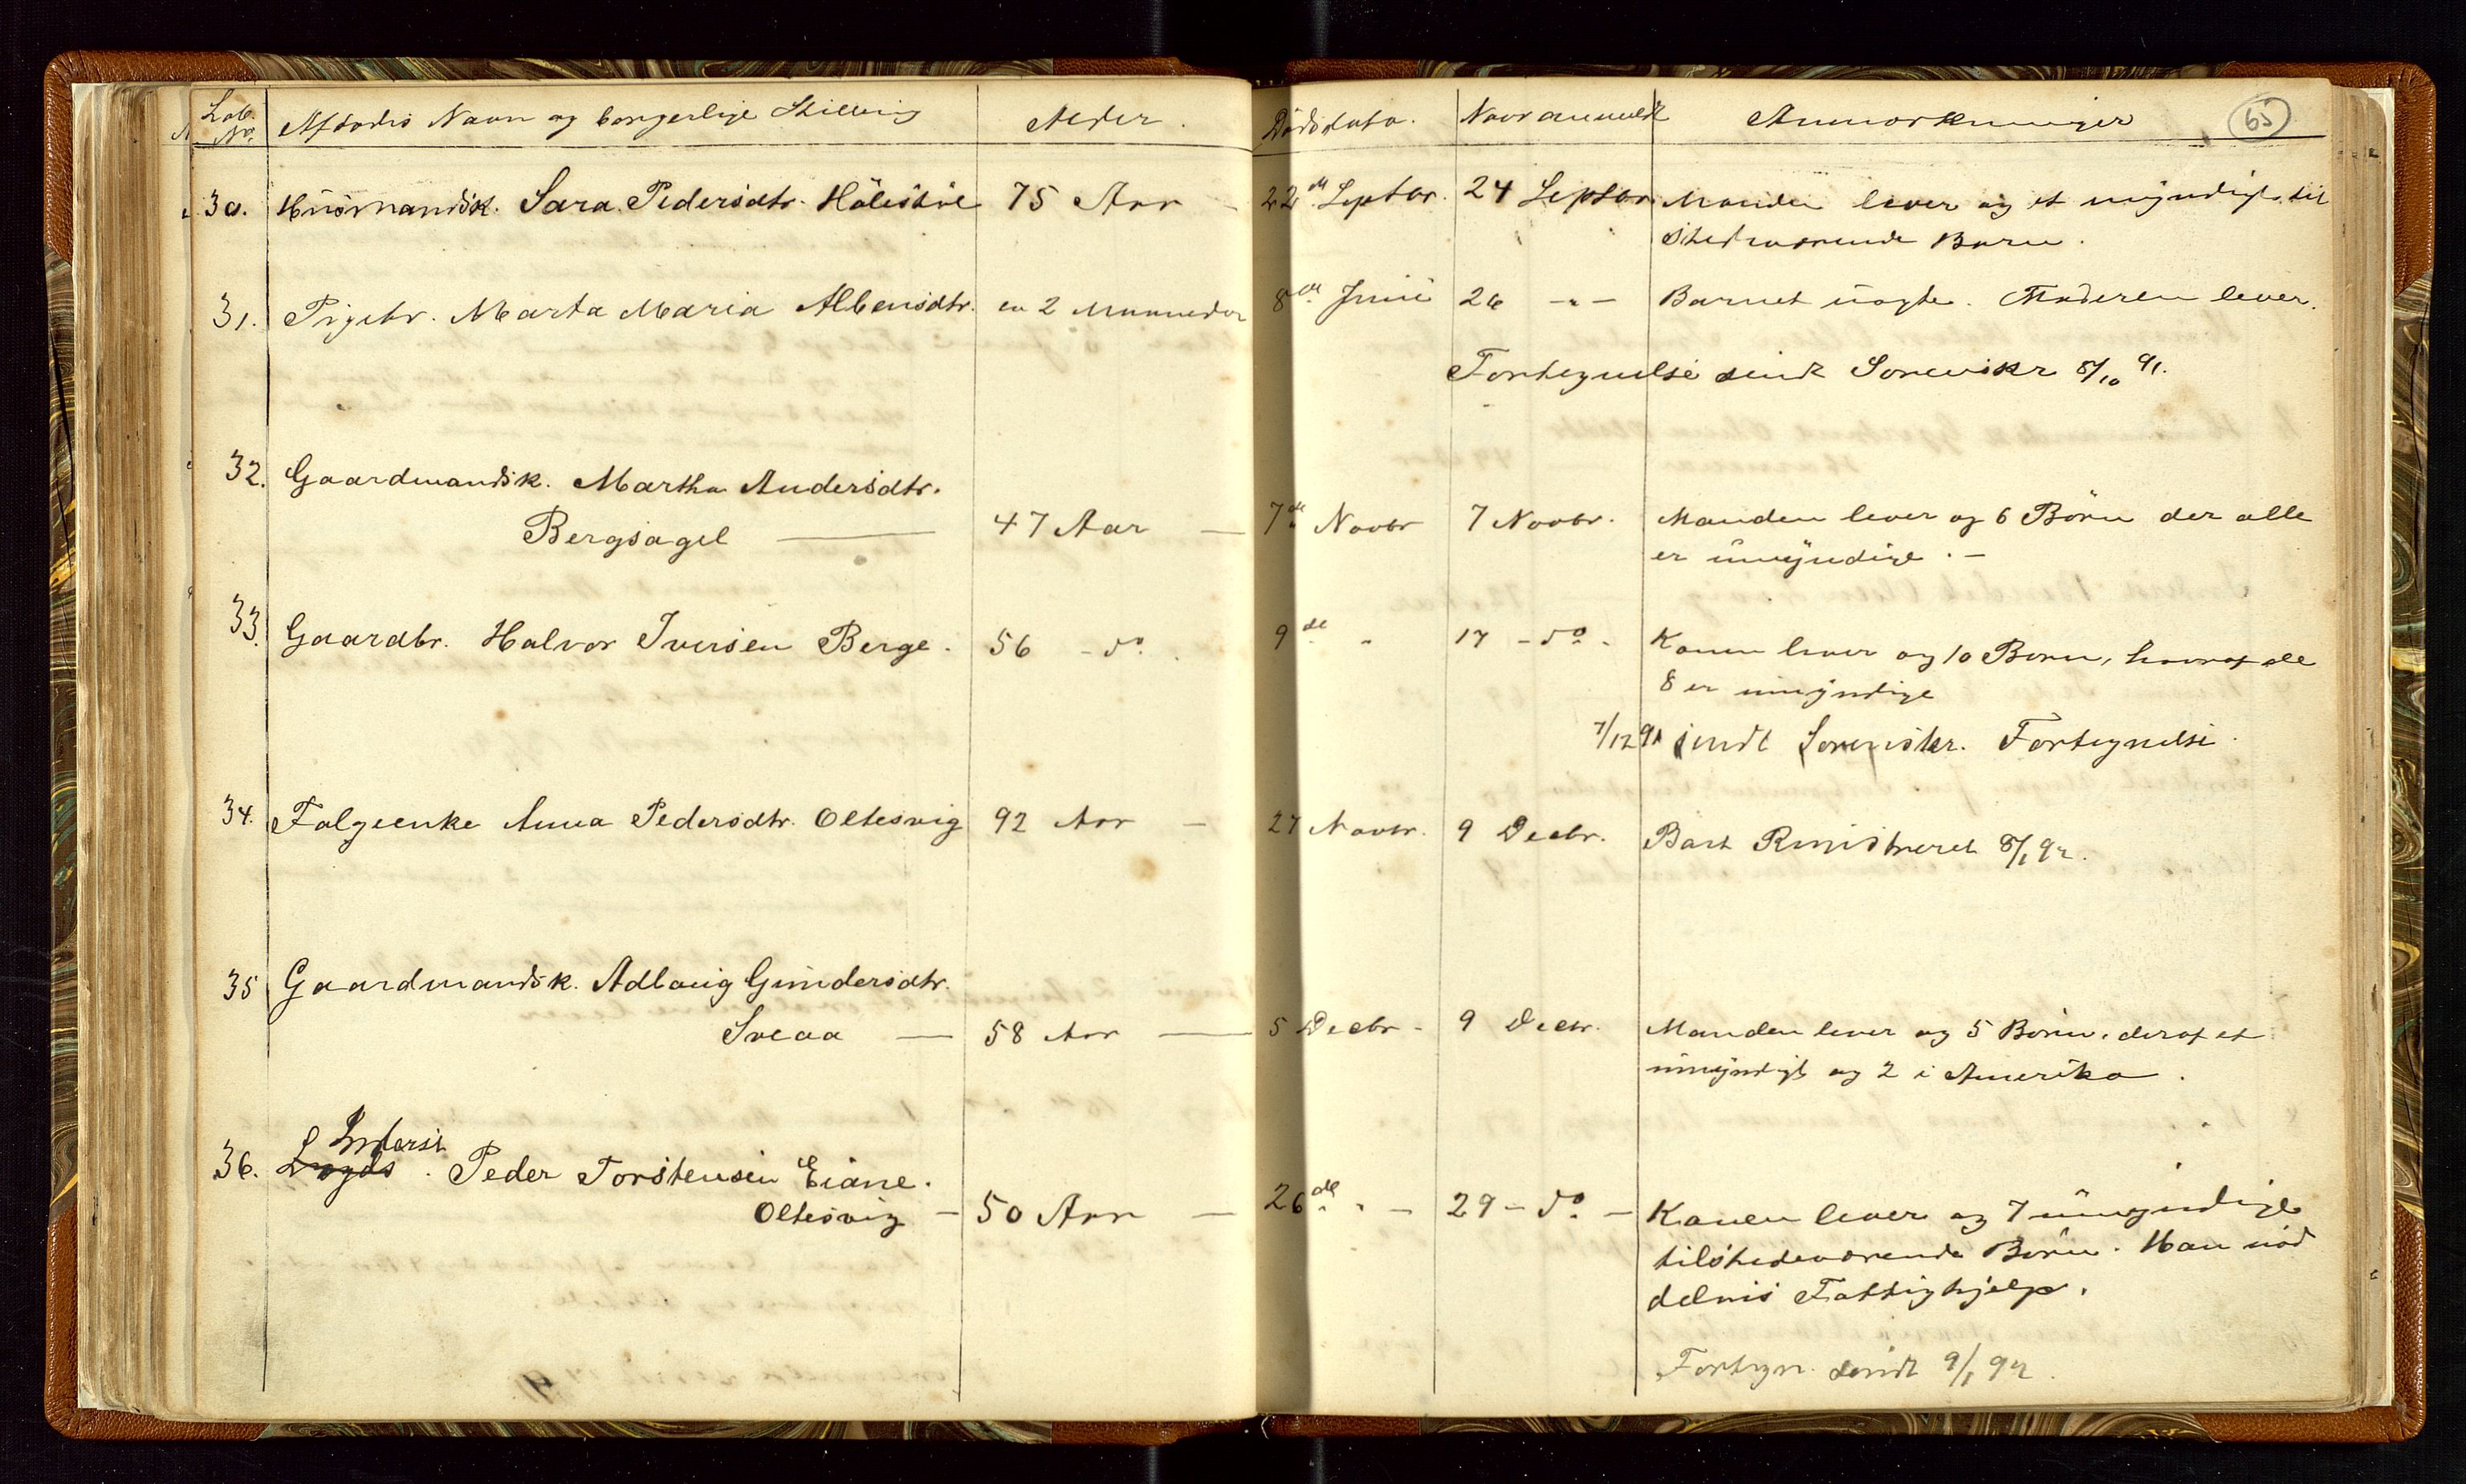 Løb. No. Afdødes Navn og borgerlige Stilling Alder. Dødsdato. Naar anmeldt Anmærkninger 65
30. Húsmandsk. Sara Pedersdtr. Hølestøl 75 Aar – 22de Septbr. 24 Septbr. Manden lever og et myndigt til
stedværende Barn.
31. Pigebr. Marta Maria Albensdtr. en 2 Maaneder 8de Juni 26 -"- Barnet uægte. Moderen lever.
Fortegnelse sendt Sorenskr 8/10 91.
32. Gaardmandsk. Martha Andersdtr.
Bergsagel — 47 Aar — 7de Novbr 7 Novbr. Manden lever og 6 Børn der alle
er umyndige. –
33. Gaardbr. Halvor Iversen Berge. 56 - do. 9de " 17 - do - Konen lever og 10 Børn, hvoraf de
8 er umyndige
7/12 91 sendt Sorenskr. Fortegnelse.
34. Folgeenke Anna Pedersdtr. Oltesvig 92 Aar – 27 Novbr. 9 Decbr. Bort 8/1 92.
35 Gaardmandsk. Adlaug Gundersdtr.
Sveaa — 58 Aar — 5 Decbr - 9 Decbr. Manden lever og 5 Børn, deraf et
umyndigt og 2 i Amerika.
Inderst
36. Peder Torstensen Eiane.
Oltesvig – 50 Aar – 26de " – 29 - do – Konen lever og 7 umyndige
tilstedeværende Børn. Han nød
delvis Fattighjelp.
Fortegn. sendt 9/1 92.